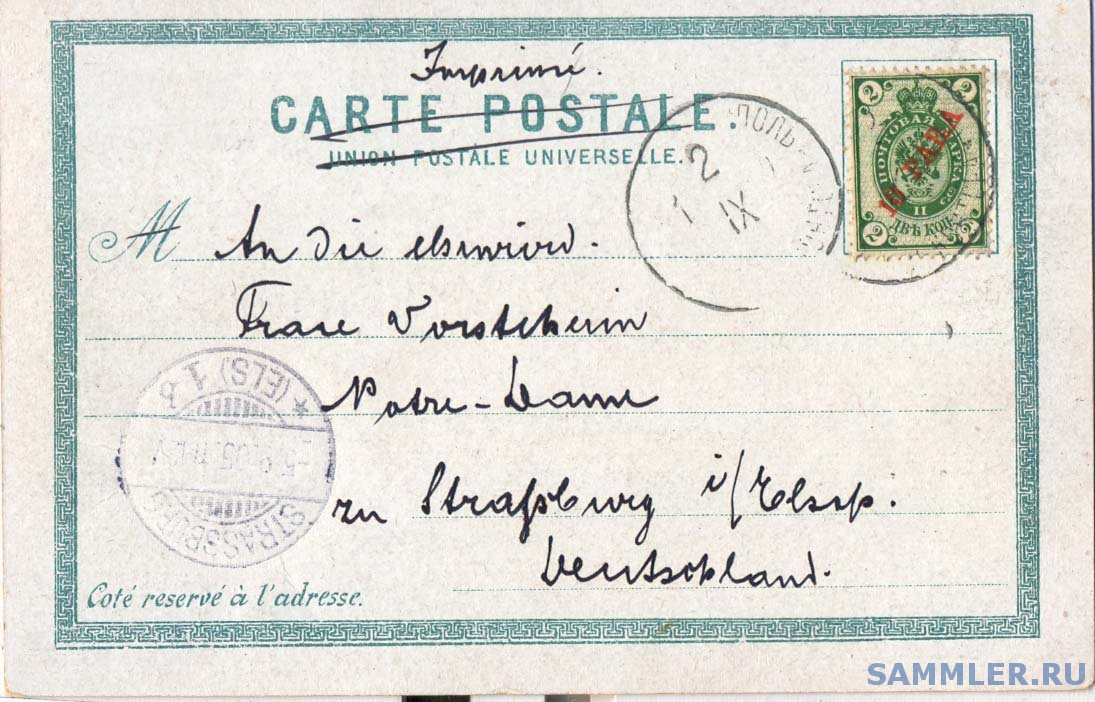 Imprimé.
CARTE POSTALE.
UNION POSTALE UNIVERSELLE.
2
1 IX
2 2
ПОЧТОВАЯ МАРКА
10 PARA
II
ДВѢ КОП.
2 2
M An die ehrwürd.
Frau Vorsteherin
Notre-Dame
zu Straßburg i/Elsaß.
Deutschland.
STRASSBURG
* (ELS) 1
Coté reservé à l'adresse.
SAMMLER.RU